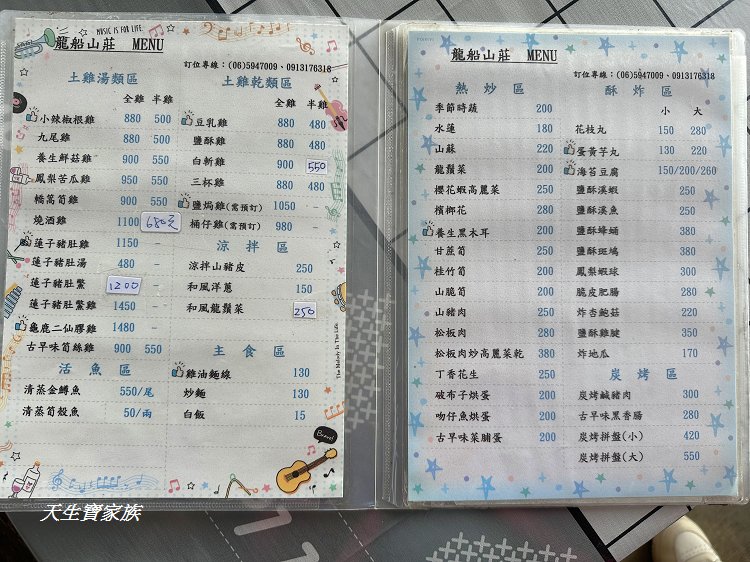 MUSIC IS FOR LIFE
龍船山莊 MENU
訂位專線：(06)5947009、0913176318
土雞湯類區
全雞 半雞
小辣椒根雞 880 500
九尾雞 880 500
養生鮮菇雞 900 550
鳳梨苦瓜雞 950 550
橘蒿筍雞 900 550
燒酒雞 1100 680元
蓮子豬肚雞 1150 -
蓮子豬肚湯 480 -
蓮子豬肚鱉 1200
蓮子豬肚鱉雞 1450 -
龜鹿二仙膠雞 1480 -
古早味筍絲雞 900 550
活魚區
清蒸金鱒魚 550/尾
清蒸筍殼魚 50/兩
土雞乾類區
全雞 半雞
豆乳雞 880 480
鹽酥雞 880 480
白斬雞 900 550
三杯雞 880 480
鹽焗雞(需預訂) 1050 -
桶仔雞(需預訂) 980 -
涼拌區
涼拌山豬皮 250
和風洋蔥 150
和風龍鬚菜 250
主食區
雞油麵線 130
炒麵 130
白飯 15
The Melody In The Life
Bravo!
龍船山莊 MENU
訂位專線：(06)5947009、0913176318
熱炒區
季節時蔬 200
水蓮 180
山蘇 220
龍鬚菜 200
櫻花蝦高麗菜 250
檳榔花 280
養生黑木耳 200
甘蔗筍 250
桂竹筍 200
山脆筍 200
山豬肉 250
松板肉 280
松板肉炒高麗菜乾 380
丁香花生 250
破布子烘蛋 200
吻仔魚烘蛋 200
古早味菜脯蛋 200
酥炸區
小 大
花枝丸 150 280
蛋黃芋丸 130 220
海苔豆腐 150/200/260
鹽酥溪蝦 250
鹽酥溪魚 250
鹽酥蜂蛹 380
鹽酥斑鳩 380
鳳梨蝦球 300
脆皮肥腸 280
炸杏鮑菇 220
鹽酥雞腱 350
炸地瓜 170
炭烤區
炭烤鹹豬肉 300
古早味黑香腸 280
炭烤拼盤(小) 420
炭烤拼盤(大) 550
天生寶家族